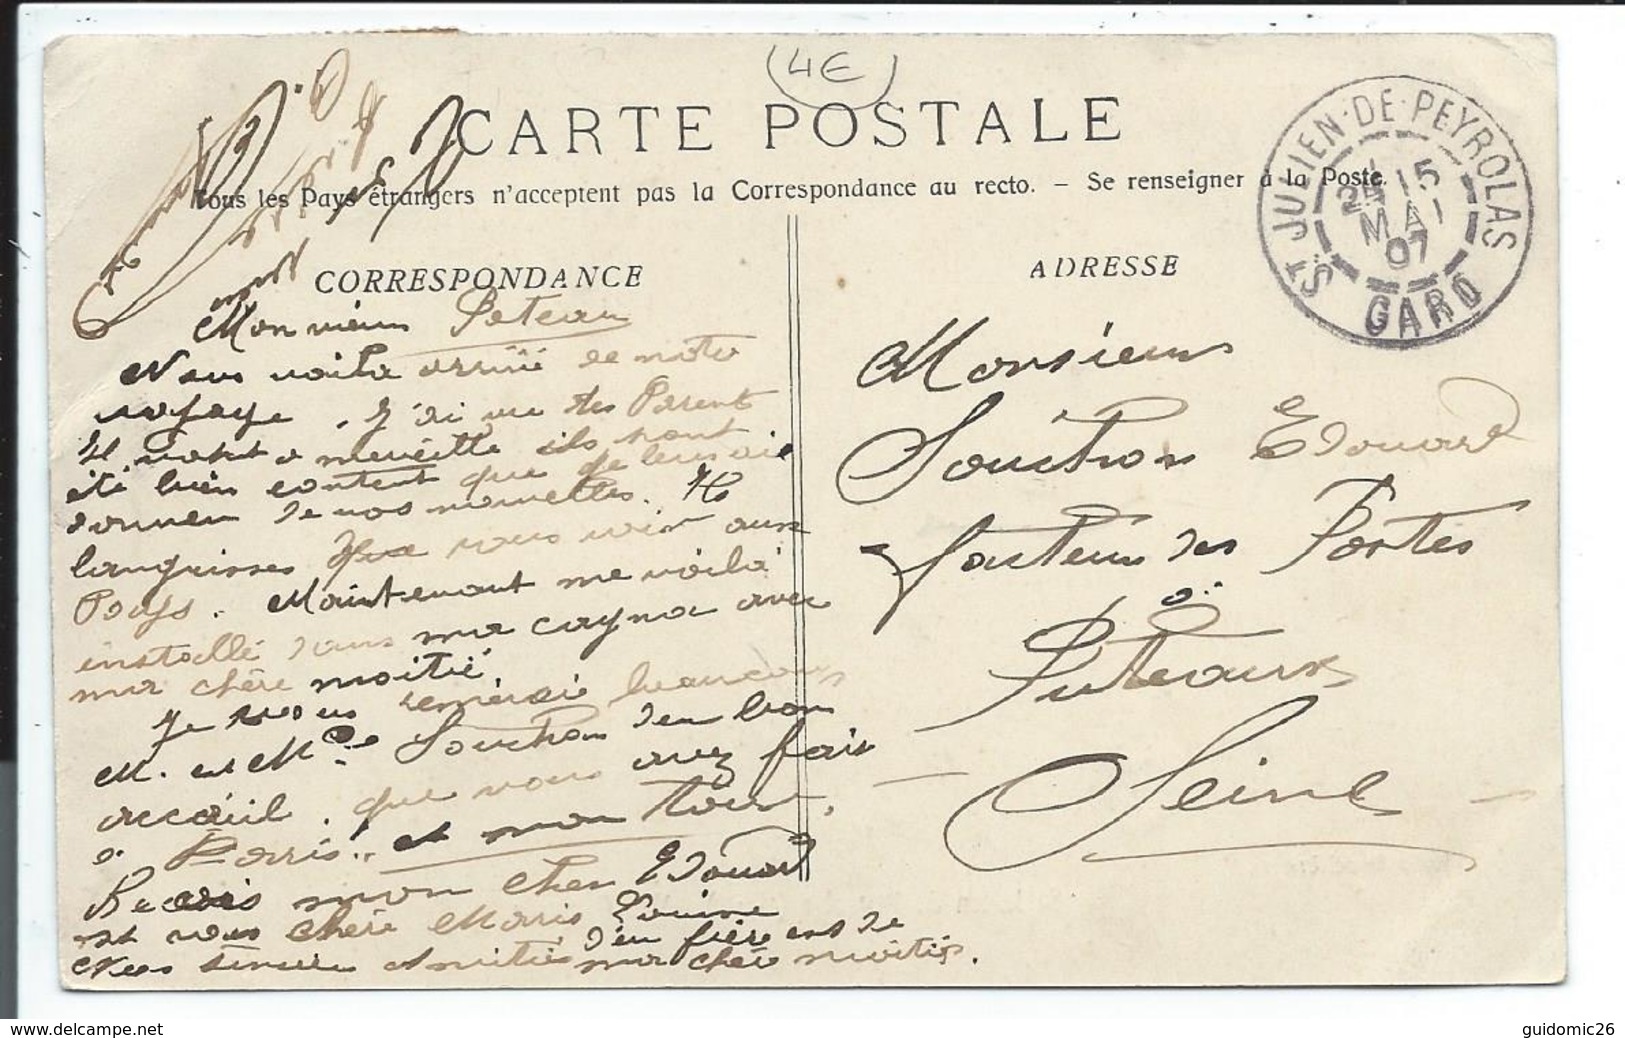 (4E)
CARTE POSTALE
Tous les Pays étrangers n'acceptent pas la Correspondance au recto. – Se renseigner à la Poste.
ST JULIEN-DE-PEYROLAS
15
MAI
07
GARD
CORRESPONDANCE
ADRESSE
Mon vieux Poteau
Nous voila arrivé de notre
voyage. J'ai vue tes Parent
Il vont a merveille ils sont
été bien content que je leur ai
donner de vos nouvelles. Il
languisses que vous voir aux
Pays. Maintenant me voilà
installé dans ma cayna avec
ma chère moitié
Je vous remercie beaucoup
M. et Mme Souchon d'eu bon
accueil. que vous avez fait
a Paris. et mon tour.
Recevis mon cher Edouard
et vous chère Marie Louise
Nos sincère Amitiés d'eu frère et de
ma chère moitié.
Monsieur
Souchon Edouard
facteur des Postes
à
Puteaux
Seine
www.delcampe.net
guidomic26